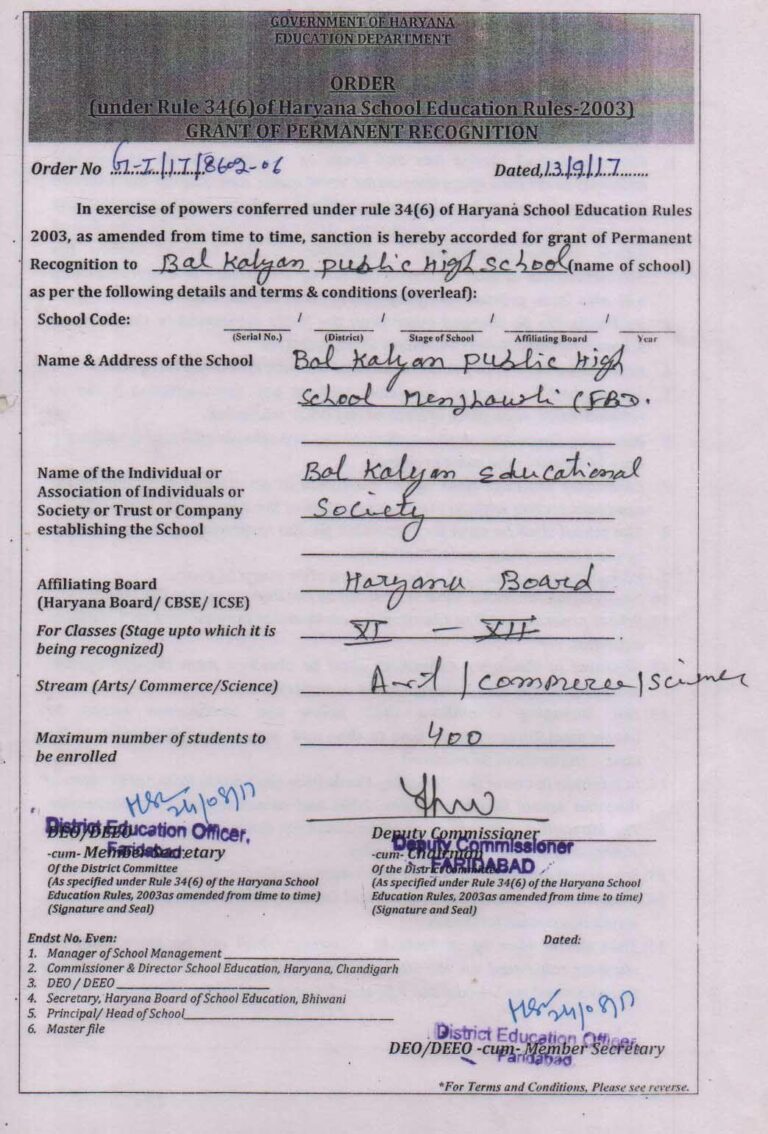 GOVERNMENT OF HARYANA
EDUCATION DEPARTMENT
ORDER
(under Rule 34(6)of Haryana School Education Rules-2003)
GRANT OF PERMANENT RECOGNITION
Order No G-I/17/8602-06 Dated, 13/9/17
In exercise of powers conferred under rule 34(6) of Haryana School Education Rules
2003, as amended from time to time, sanction is hereby accorded for grant of Permanent
Recognition to Bal Kalyan public High school (name of school)
as per the following details and terms & conditions (overleaf):
School Code: / / / /
(Serial No.) (District) Stage of School Affiliating Board Year
Name & Address of the School Bal Kalyan Public High
School (FBD.
Name of the Individual or Bal Kalyan Educational
Association of Individuals or
Society or Trust or Company Society
establishing the School
Affiliating Board Haryana Board
(Haryana Board/ CBSE/ ICSE)
For Classes (Stage upto which it is XI — XII
being recognized)
Stream (Arts/ Commerce/Science) Art / commerce / science
Maximum number of students to 400
be enrolled
24/08/17
District Education Officer,
Faridabad
DEO/DEEO
-cum- Member Secretary
Of the District Committee
(As specified under Rule 34(6) of the Haryana School
Education Rules, 2003as amended from time to time)
(Signature and Seal)
Deputy Commissioner
Deputy Commissioner
-cum- Chairman
FARIDABAD
Of the District Committee
(As specified under Rule 34(6) of the Haryana School
Education Rules, 2003as amended from time to time)
(Signature and Seal)
Endst No. Even: Dated:
1. Manager of School Management
2. Commissioner & Director School Education, Haryana, Chandigarh
3. DEO / DEEO
4. Secretary, Haryana Board of School Education, Bhiwani
5. Principal/ Head of School
6. Master file
24/08/17
District Education Officer
DEO/DEEO -cum- Member Secretary
Faridabad
*For Terms and Conditions, Please see reverse.